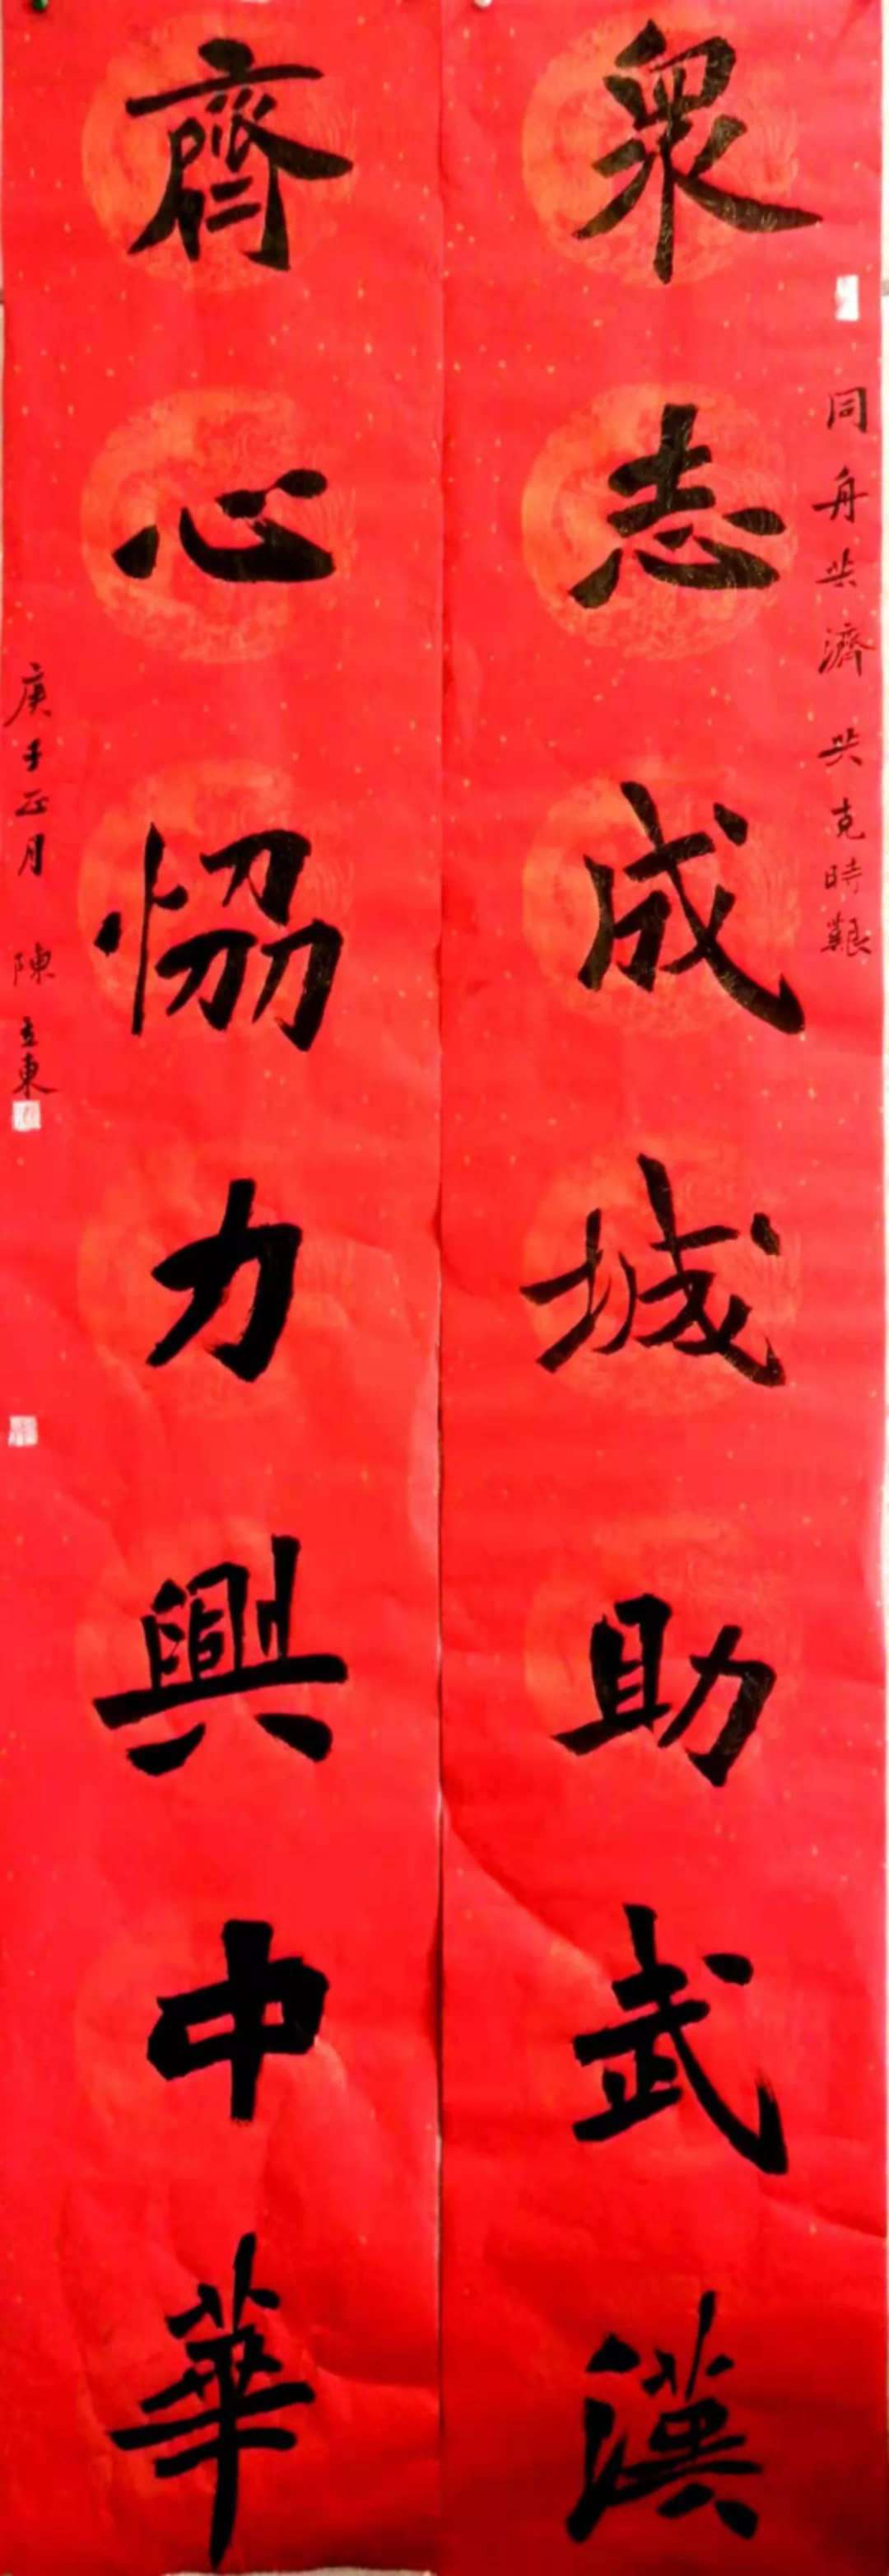 同舟共濟共克時艱
眾志成城助武漢
齊心恊力興中華
庚子正月 陳立東